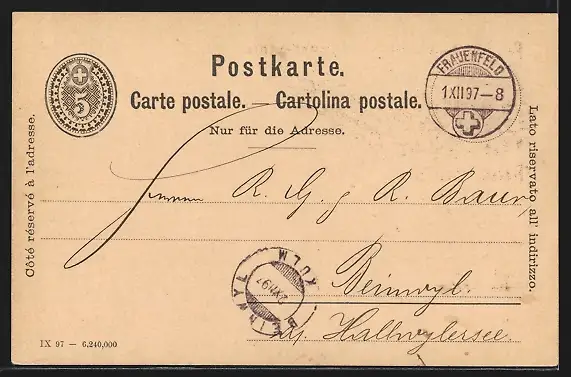 Postkarte.
Carte postale. — Cartolina postale.
Nur für die Adresse.
5
FRAUENFELD
1 XII 97–8
Côté réservé à l'adresse.
Lato riservato all' indirizzo.
Herren R. G. & R. Baur
Beinwyl.
a/ Hallwylersee.
KULM
2 XII 97
BEINWYL
IX 97 — 6,240,000